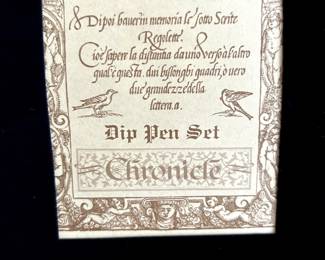 Dipoi bauerin memoria le sotto Scritte
Regolette.
Cioè sapere la distantia da uno verso à l'altro
qual'è questa. dui bissonghi quadri, o vero
due grandezze della
lettera .a.
Dip Pen Set
Chronicle